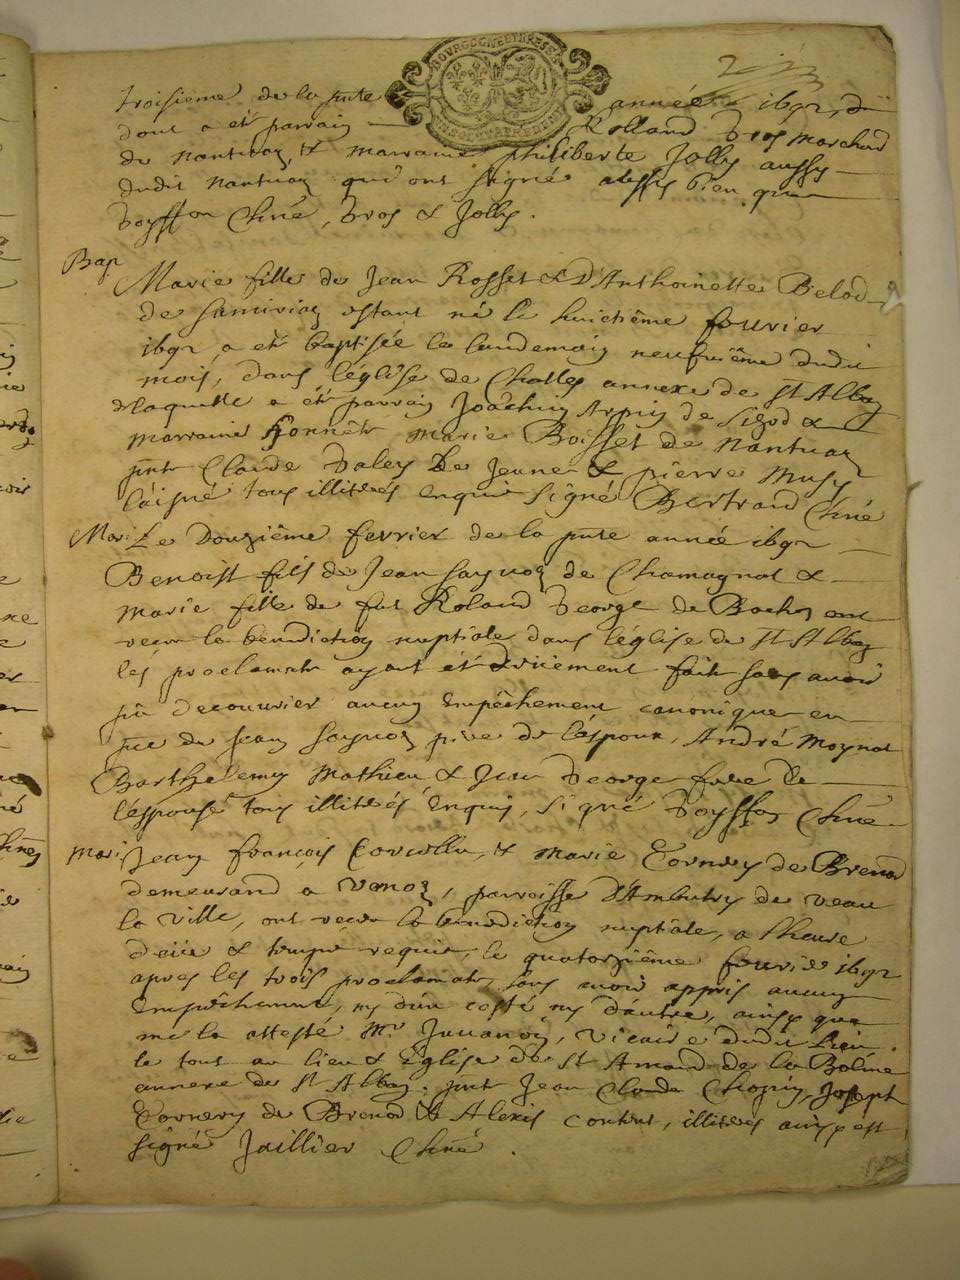 BOURGOGNE ET BRESSE
troisieme de la pnte année 1692, du
dont a eté parrain Rolland Bros marchand
de nantuaz, & marraine philiberte Jolly aussy
dudit nantuaz qui ont signé bien que
Curé, Bros & Jolly.
Bap
Marie fille de Jean Rosset & D'Anthoinette Belod
de estant née le huictième febvrier
1692 a eté baptisée le lendemain neufvième dudit
mois, dans l'église de Challes annexe de St Alban
de laquelle a été parrain Joachin Arpin de Sigod &
marraine honnête Marie Boisset de nantuaz
pnt Claude Baley Le Jeune & pierre Musy
l'aisné tous illiterés enquis signé Bertrand Curé
Mari Le Douzième fevrier de la pnte année 1692
Benoist fils de Jean de Chamagnat &
Marie fille de fut Roland George de ont
receu la benediction nuptiale dans l'église de St Alban
les proclamats ayant été düement fait sans avoir
pû decouvrier aucun empêchement canonique en
pnce de Jean père de l'espoux, André Moynat
Barthelemy Mathieu & Jean George frere de
l'espouse tous illiterés enquis, signé Curé
Mari Jean françois & Marie Tornery de Brenod
demeurand a parroisse D'Ambutry de veau
la ville, ont receu la benediction nuptiale, a l'heure
deüe & temps requis, le quatorzième febvrier 1692
apres les trois proclamats sans avoir appris aucun
empêchement, ny d'un costé ny d'autre, ainsy que
me la attesté Mr Juvanon, vicaire dudit lieu.
le tout au lieu & Eglise de St Amand de la Balme
annexe de St Alban. pnt Jean Claude Chapuy, Joseph
Tornery de Brenod & Alexis illiterés ainsy est
signé Jaillier Curé.